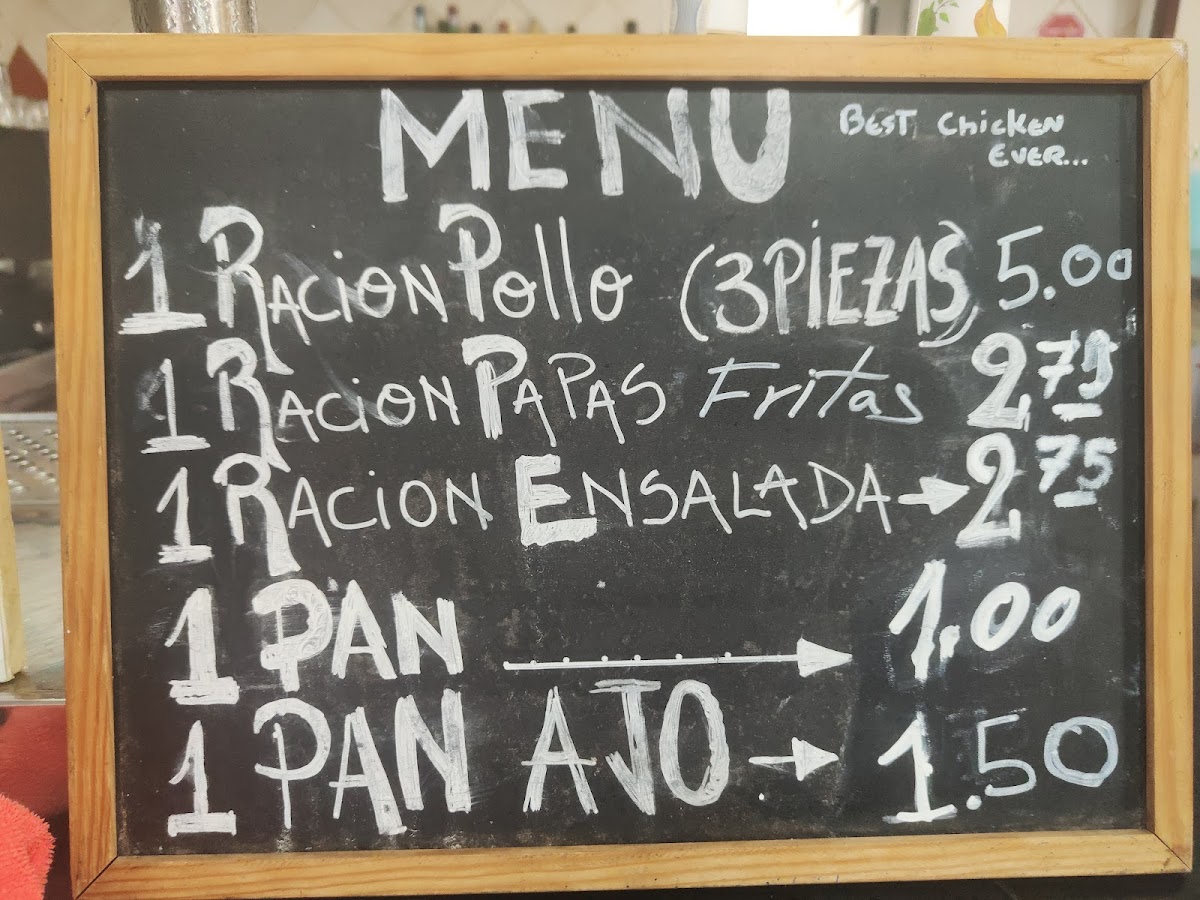 MENU
BEST Chicken
EVER...
1 RACION Pollo (3 PIEZAS) 5.00
1 RACION PAPAS Fritas 2,75
1 RACION ENSALADA → 2,75
1 PAN → 1,00
1 PAN AJO → 1.50